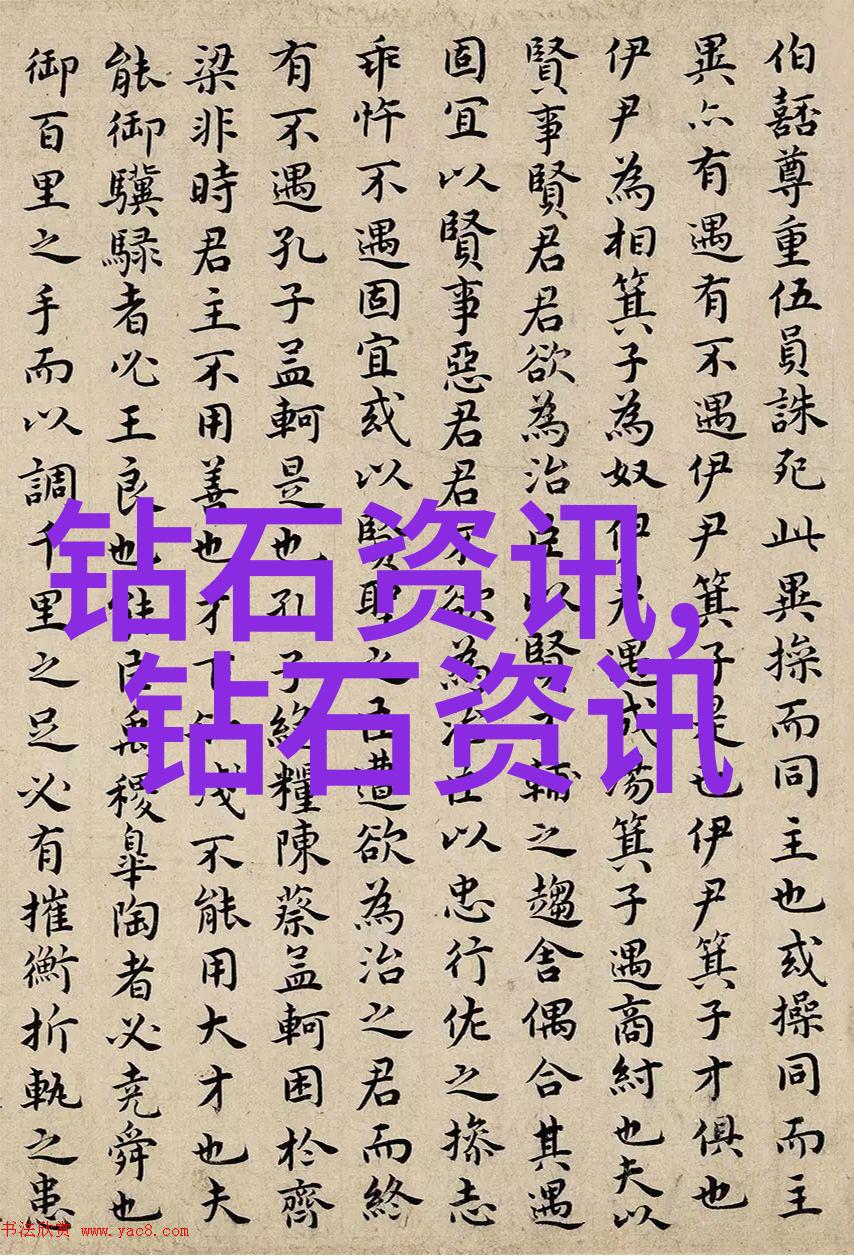 伯嚭尊重伍員誅死此異操而同主也或操同而主
異亦有遇有不遇伊尹箕子是也伊尹箕子才俱也
伊尹為相箕子為奴伊尹遇成湯箕子遇商紂也夫以
賢事賢君君欲為治臣以賢才輔之趨舍偶合其遇
固冝以賢事惡君君不欲為治臣以忠行佐之操志
乖忤不遇固宜或以賢聖之臣遭欲為治之君而終
有不遇孔子孟軻是也孔子絕糧陳蔡孟軻困於齊
梁非時君主不用善也才下知淺不能用大才也夫
能御驥騄者必王良也能臣禹稷皐陶者必堯舜也
御百里之手而以調千里之足必有摧衡折軛之患
钻石资讯,
钻石资讯
书法欣赏 www.yac8.com